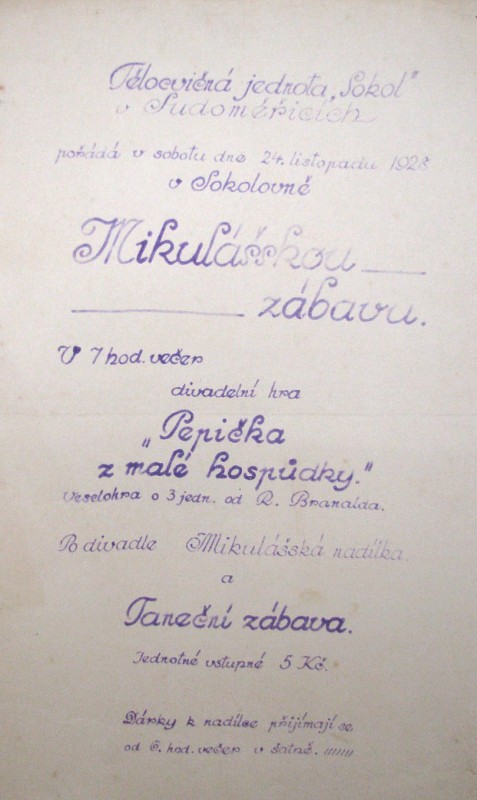 Tělocvičná jednota „Sokol"
v Sudoměřicích
pořádá v sobotu dne 24. listopadu 1928
v Sokolovně
Mikulášskou
zábavu.
V 7 hod. večer
divadelní hra
„Pepička
z malé hospůdky."
Veselohra o 3 jedn. od R. Branalda.
Po divadle Mikulášská nadílka
a
Taneční zábava.
Jednotné vstupné 5 Kč.
Dárky k nadílce přijímají se
od 6. hod. večer v šatně.